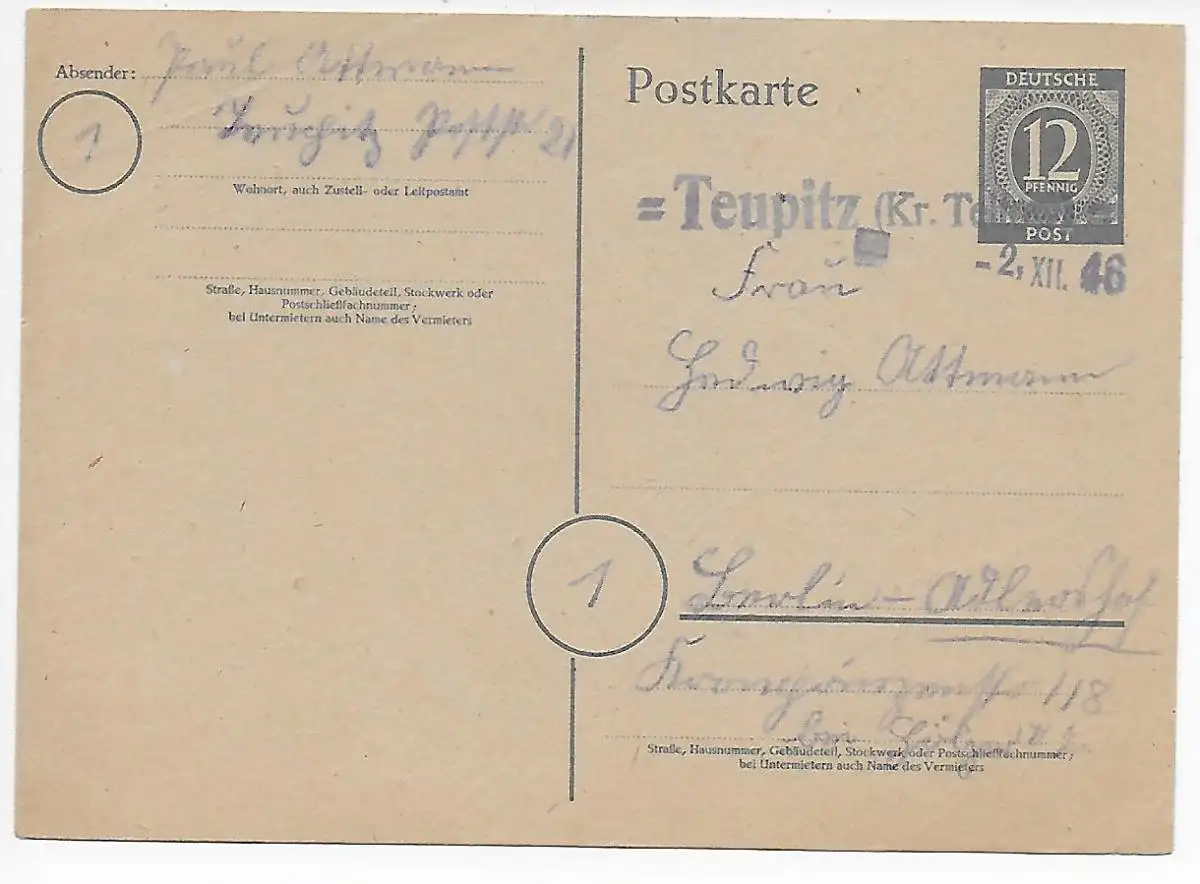 Absender: Paul Attmann
1
Teupitz Poststr 21
Wohnort, auch Zustell- oder Leitpostamt
Straße, Hausnummer, Gebäudeteil, Stockwerk oder
Postschließfachnummer;
bei Untermietern auch Name des Vermieters
Postkarte
DEUTSCHE
12
PFENNIG
POST
= Teupitz (Kr.
- 2. XII. 46
Frau
Hedwig Attmann
1
Berlin-Adlershof
Kronprinzenstr 118
bei
Straße, Hausnummer, Gebäudeteil, Stockwerk oder Postschließfachnummer;
bei Untermietern auch Name des Vermieters